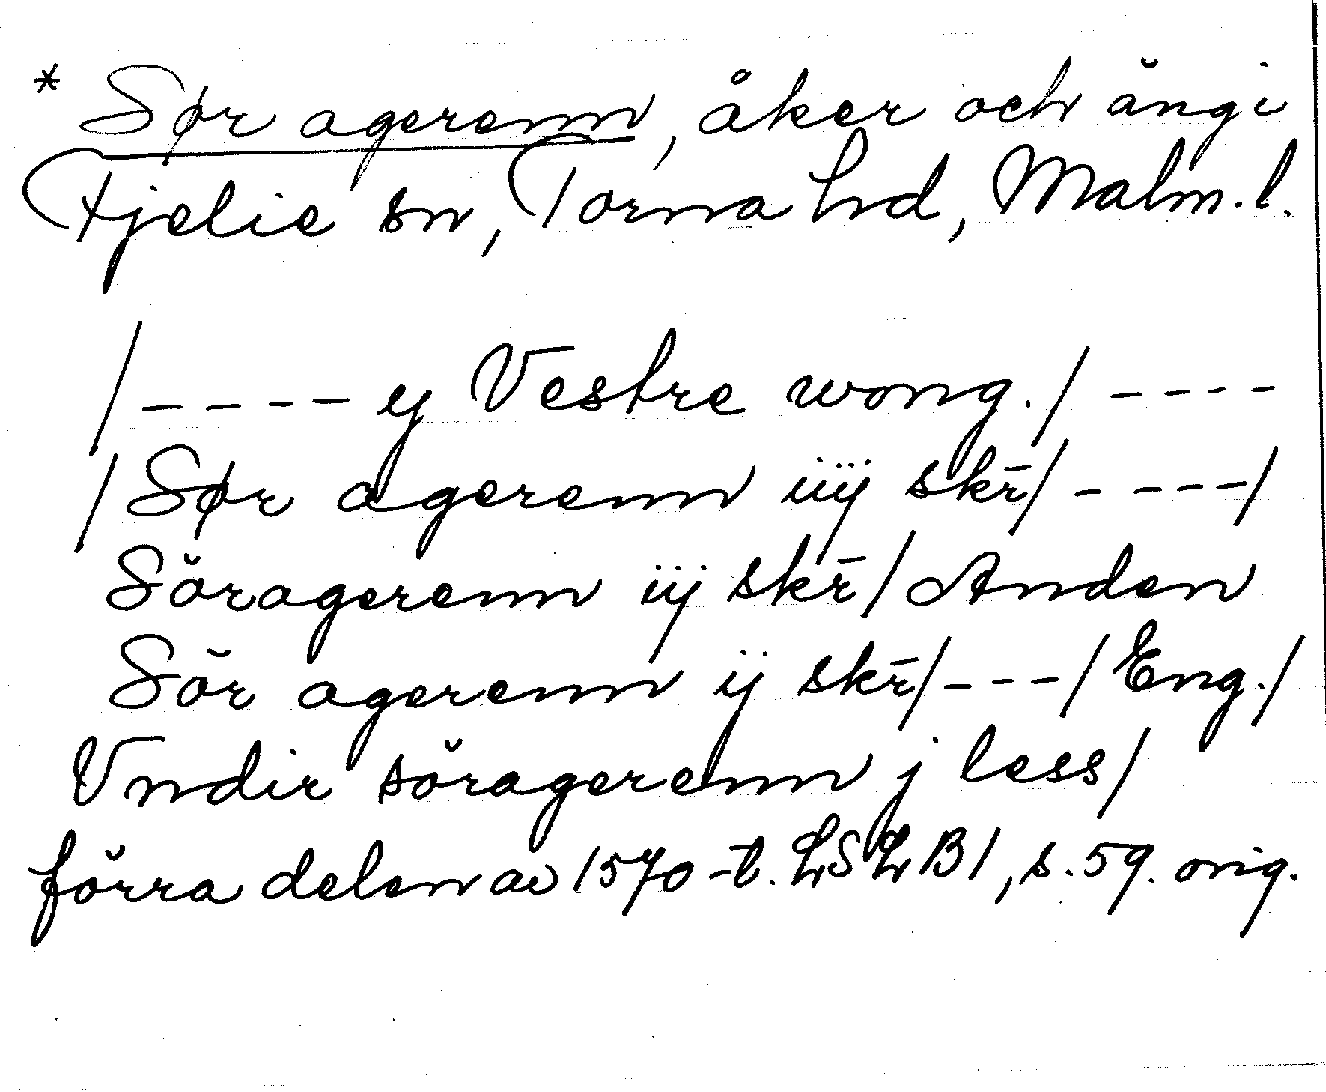 * Sør agerenn, åker och äng i
Fjelie sn, Torna hd, Malm. l.
/ - - - - y Vestre wong. / - - - -
/ Sør agerenn iiij skr̄ / - - - - /
Söragerenn iij skr̄ / Anden
Sör agerenn ij skr̄ / - - - / Eng. /
Vndir söragerenn j less /
förra delen av 1570-t. LSLB1, s. 59. orig.